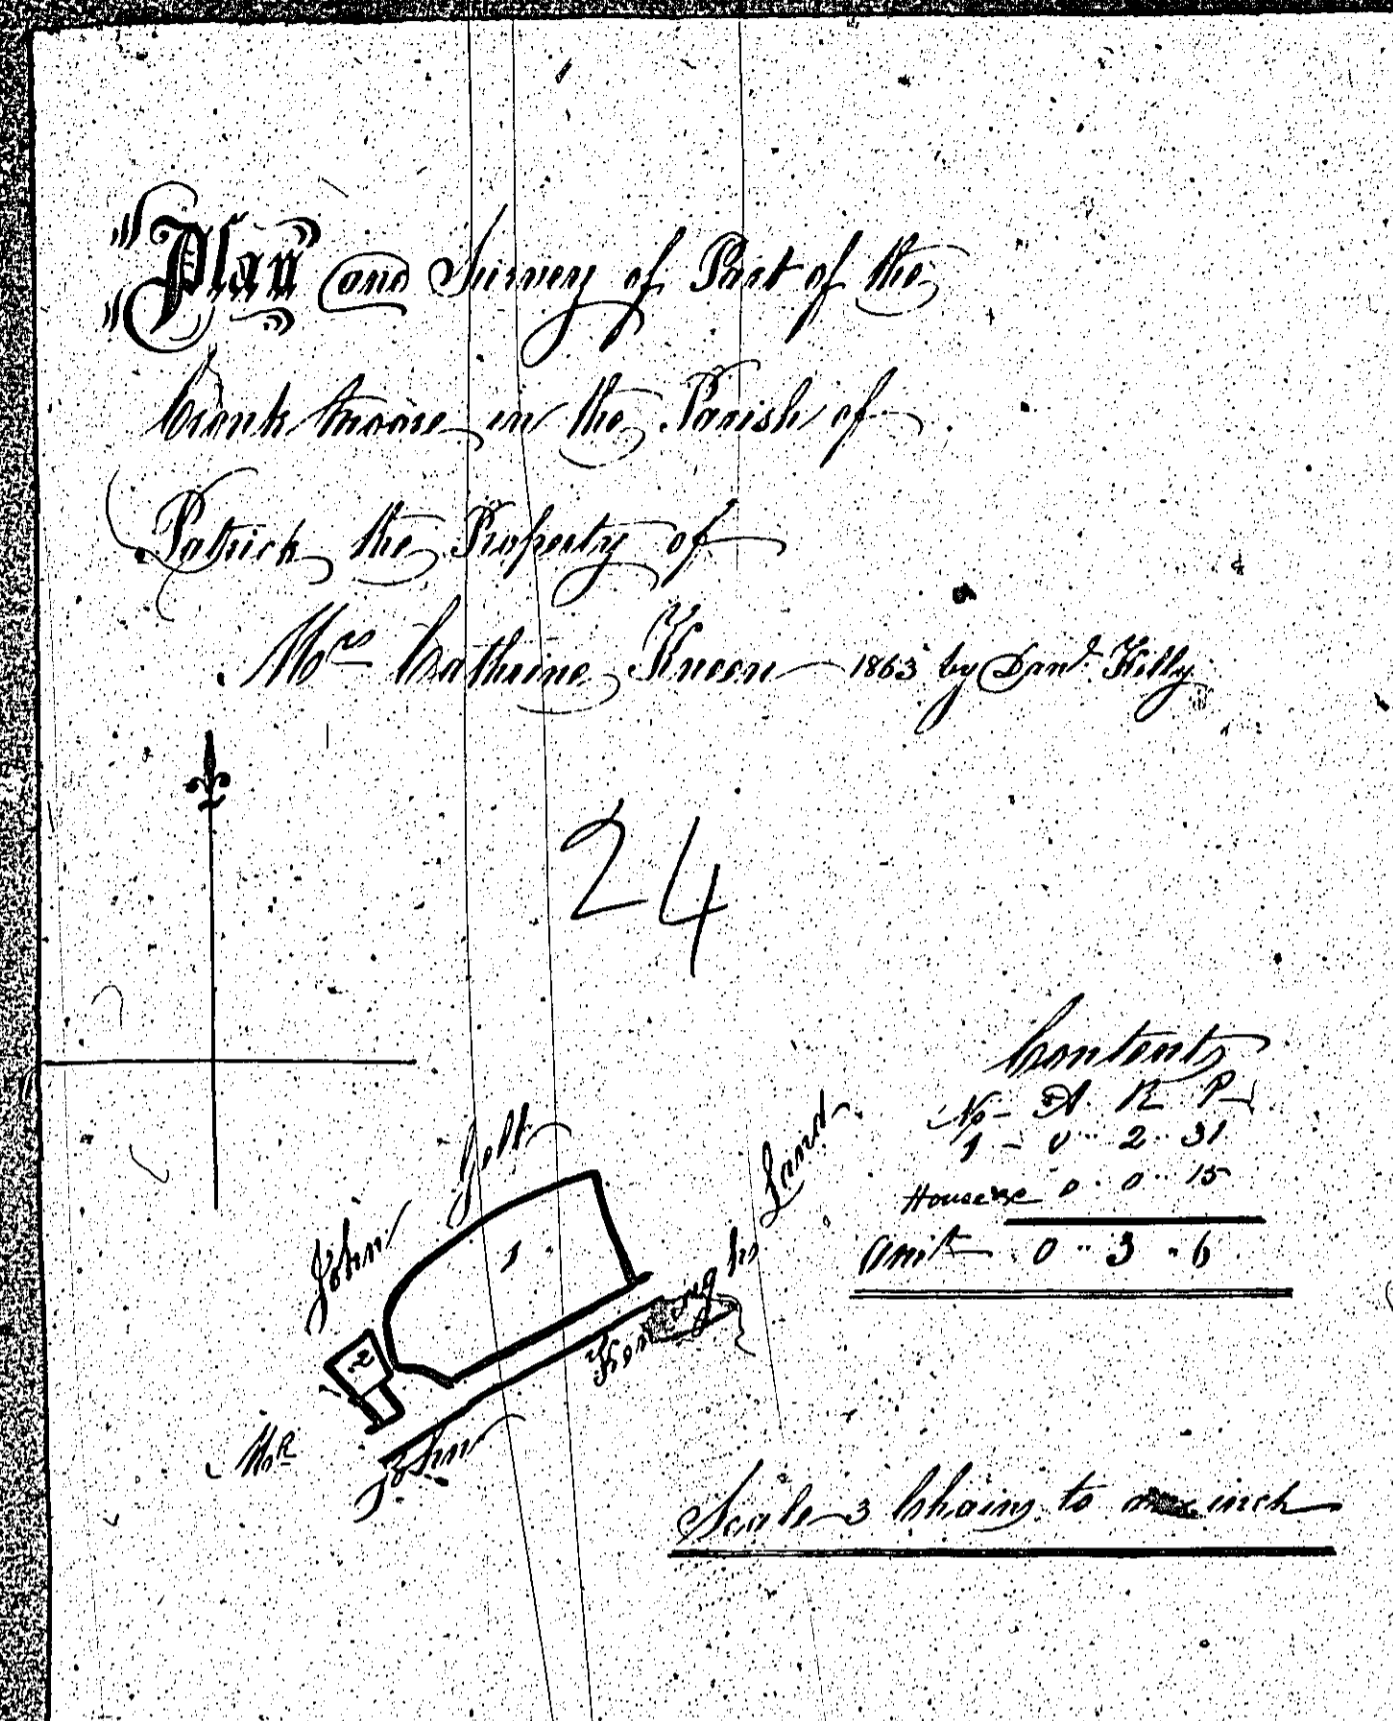 "Plan" and Survey of Part of the
Cronk moore in the Parish of
Patrick the Property of
Mrs Cathrine Kneen 1863 by Danl. Killy
24
Contents
No- A. R. P
1 - 0 .. 2 .. 31
House &c 0 . 0 .. 15
Amt 0 .. 3 .. 6
John
1
2
Land
Mr.
John
Scale 3 Chains to inch